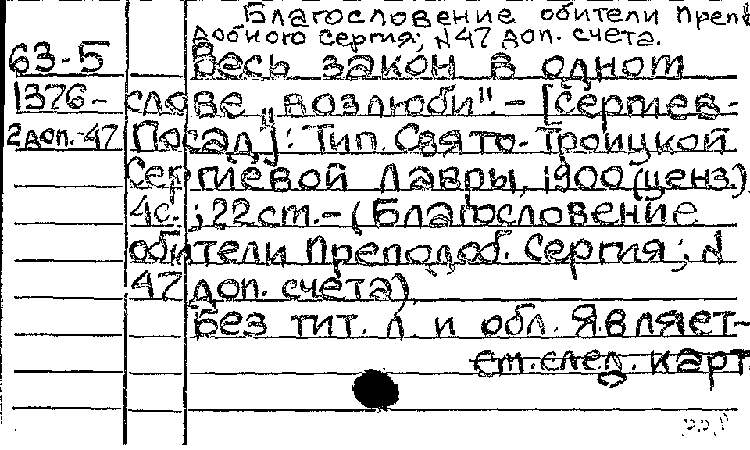 Благословение обители Преп
добного Сергия; N47 доп. счета.
63-5 Весь закон в одном
1376- слове „возлюби". - [Сергиев-
2 доп.-47 Посад]: Тип. Свято-Троицкой
Сергиевой Лавры, 1900 (ценз.)
4с.; 22 ст. - (Благословение
обители Преподоб. Сергия; N
47 доп. счета)
Без тит. л. и обл. Являет-
см. след. карт.